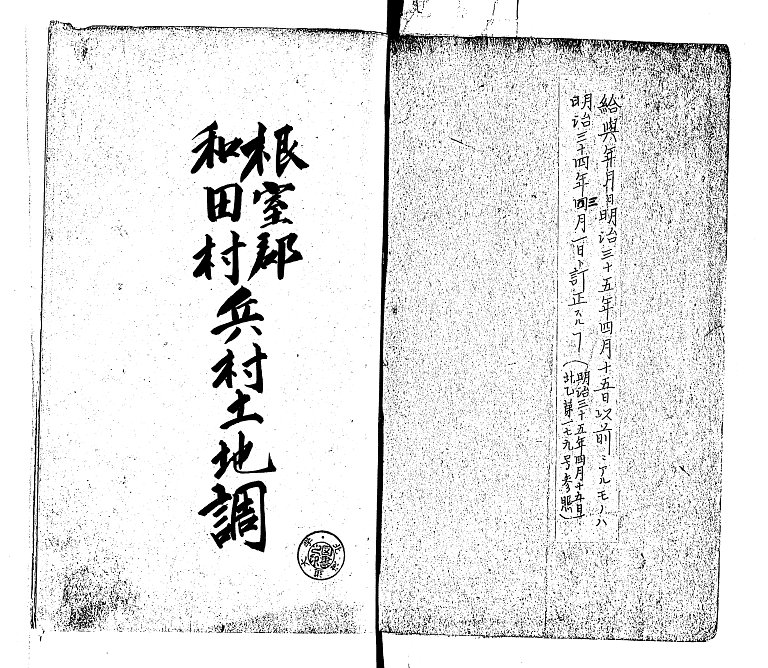 給與年月日明治三十五年四月十五日以前ニアルモノハ
明治三十四年三月一日ト訂正スルヿ(明治三十五年四月十五日
廾乙第一七九号参照)
根室郡
和田村
兵村土地調